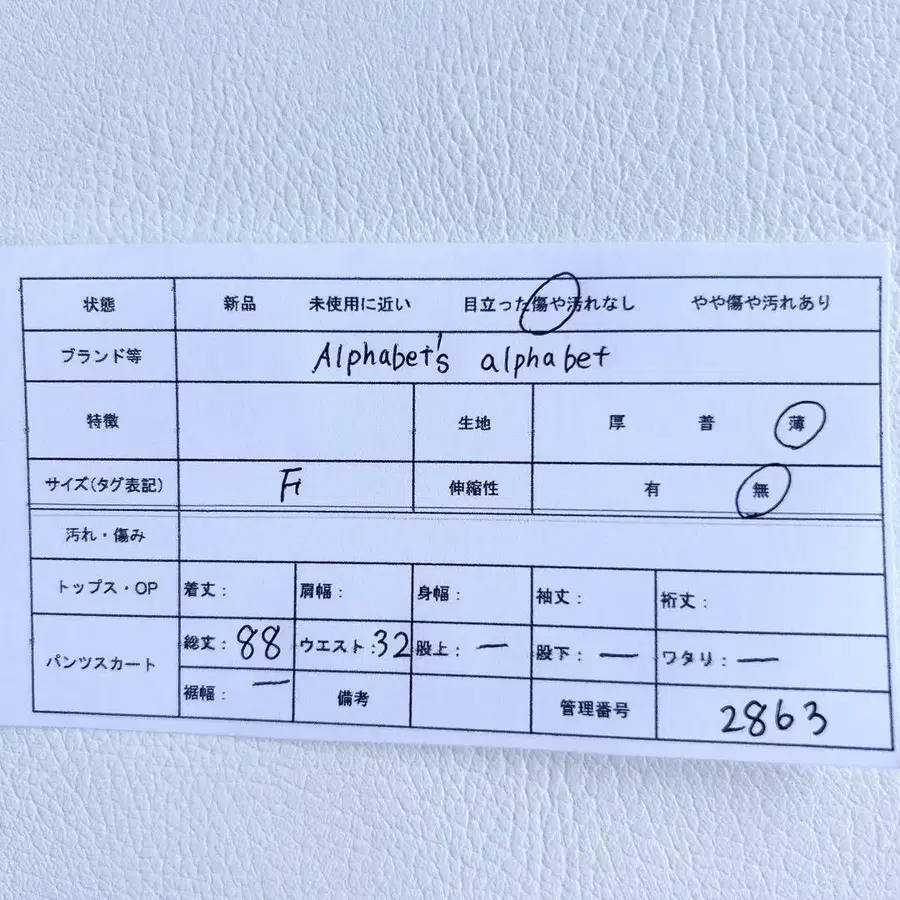 状態 新品 未使用に近い 目立った傷や汚れなし やや傷や汚れあり
ブランド等 Alphabet's alphabet
特徴 生地 厚 普 薄
サイズ(タグ表記) F 伸縮性 有 無
汚れ・傷み
トップス・OP 着丈: 肩幅: 身幅: 袖丈: 裄丈:
パンツスカート 総丈: 88 ウエスト: 32 股上: ー 股下: ー ワタリ: ー
裾幅: ー 備考 管理番号 2863